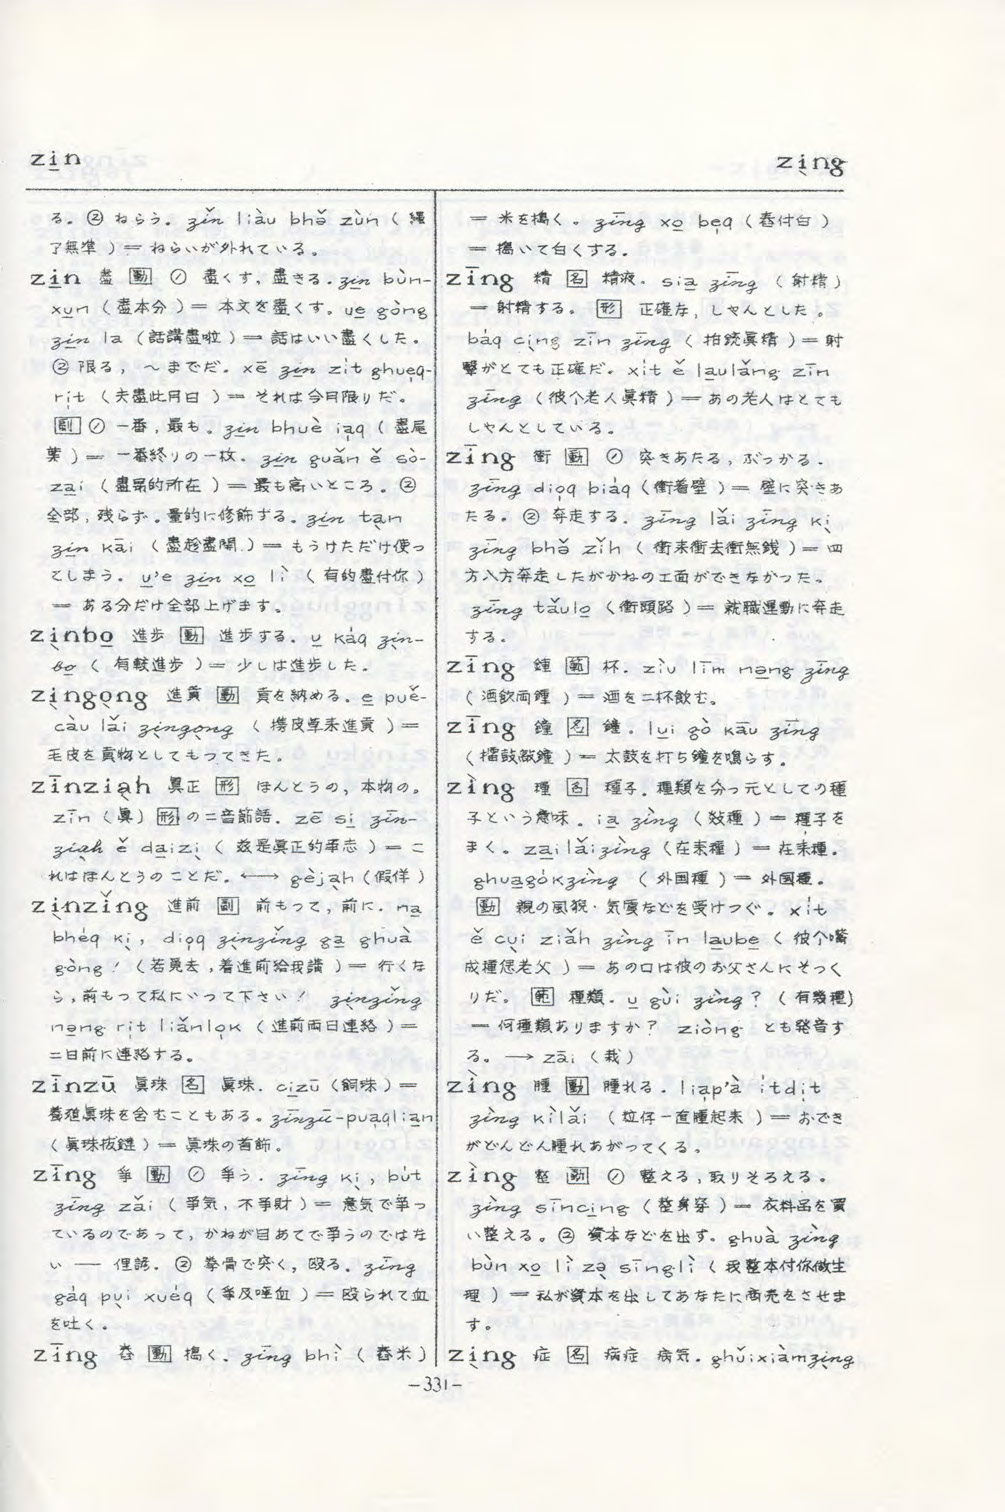 zi̠n
zi̖ng
る。② ねらう. zǐn liàu bhǒ zùn ( 縄
了無準 ) ＝ ねらいが外れている。
zi̠n 盡 動 ① 盡くす, 盡きる. zi̠n bùn-
xu̠n ( 盡本分 ) ＝ 本文を盡くす。u̠e gòng
zi̠n la ( 話講盡啦 ) ＝ 話はいい盡くした。
② 限る, 〜までだ。xē zi̠n zi̍t ghue̍q-
ri̍t ( 夫盡此月日 ) ＝ それは今月限りだ。
副 ① 一番, 最も。zi̠n bhuè ia̍q ( 盡尾
葉 ) ＝ 一番終りの一枚. zi̠n guǎn ě sò-
za̠i ( 盡昂的所在 ) ＝ 最も高いところ。②
全部, 残らず. 量的に修飾する。zi̠n ta̠n
zi̠n kāi ( 盡趁盡開 ) ＝ もうけただけ使っ
てしまう. u̠'e zi̠n xo̠ lì ( 有的盡付你 )
＝ ある分だけ全部上げます。
zi̖nbo̠ 進歩 動 進歩する. u̠ ka̍q zi̖n-
bo̠ ( 有較進歩 ) ＝ 少しは進歩した。
zi̖ngo̖ng 進貢 動 貢を納める. e puě-
càu lǎi zi̖ngo̖ng ( 携皮草来進貢 ) ＝
毛皮を貢物としてもってきた。
zīnzia̖h 真正 形 ほんとうの, 本物の。
zīn ( 眞 ) 形 の二音節語. zē si̠ zīn-
zia̖h ě da̠izi̖ ( 玆是眞正的事志 ) ＝ こ
れはほんとうのことだ. ←→ gèja̖h (假佯 )
zi̖nzǐng 進前 副 前もって, 前に. na̠
bhéq ki̖, dio̍q zi̖nzǐng ga̠ ghuà
gòng! ( 若覓去 , 着進前給我講 ) ＝ 行くな
ら, 前もって私にいって下さい! zi̖nzǐng
no̠ng ri̍t liǎnlo̖k ( 進前両日連絡 ) ＝
二日前に連絡する。
zīnzū 眞珠 名 眞珠. ci̖zū (飼珠 ) ＝
養殖眞珠を含むこともある。zīnzū-pua̖qlia̖n
( 眞珠抜鏈 ) ＝ 眞珠の首飾。
zīng 爭 動 ① 爭う. zīng ki̖, bu̍t
zīng zǎi ( 爭気, 不爭財 ) ＝ 意気で爭っ
ているのであって, かねが目あてで爭うのではな
い ― 俚諺. ② 拳骨で突く, 毆る. zīng
gáq pu̖i xuéq ( 爭及唾血 ) ＝ 毆られて血
を吐く。
zīng 舂 動 搗く. zīng bhì ( 舂米 )
＝ 米を搗く。zīng xo̠ be̍q ( 舂付白 )
＝ 搗いて白くする。
zīng 精 名 精液. sia̠ zīng ( 射精 )
＝ 射精する。 形 正確な, しゃんとした。
báq ci̖ng zīn zīng ( 拍銃眞精 ) ＝ 射
撃がとても正確だ。xít ě la̠ulǎng zīn
zīng ( 彼个老人眞精 ) ＝ あの老人はとても
しゃんとしている。
zīng 衝 動 ① 突きあたる, ぶっかる.
zīng dio̍q biáq ( 衝着壁 ) ＝ 壁に突きあ
たる。② 奔走する. zīng lǎi zīng ki̖
zīng bhǒ zǐh ( 衝来衝去衝無銭 ) ＝ 四
方八方奔走したがかねの工面ができなかった。
zīng tǎulo̠ ( 衝頭路 ) ＝ 就職運動に奔走
する。
zīng 鍾 範 杯. zìu līm no̠ng zīng
( 酒飲両鍾 ) ＝ 酒を二杯飲む。
zīng 鐘 名 鐘. lu̠i gò ka̖u zīng
( 擂鼓敲鐘 ) ＝ 太鼓を打ち鐘を鳴らす。
zìng 種 名 種子. 種類を分つ元としての種
子という意味. ia̠ zìng ( 敥種 ) ＝ 種子を
まく。za̠ilǎizìng (在来種 ) ＝ 在来種。
ghua̠gókzìng ( 外国種 ) ＝ 外国種。
動 親の風貌・気質などを受けつぐ。xít
ě cu̖i ziǎh zìng īn la̠ube̠ ( 彼个嘴
成種偲老父 ) ＝ あの口は彼のお父さんにそっく
りだ。 範 種類. u̠ gùi zìng? ( 有幾種)
＝ 何種類ありますか? ziòng とも発音す
る。→ zāi ( 栽 )
zìng 腫 動 腫れる. lia̍p'à ítdi̍t
zìng kìlǎi ( 粒仔一直腫起来 ) ＝ おでき
がどんどん腫れあがってくる。
zìng 整 動 ① 整える, 取りそろえる。
zìng sīnci̖ng ( 整身穿 ) ＝ 衣料品を買
い整える。② 資本などを出す。ghuà zìng
bùn xo̠ lì zo̖ sīnglì ( 我整本付你做生
理 ) ＝ 私が資本を出してあなたに商売をさせま
す。
zi̖ng 症 名 病症 病気. ghǔixiàmzi̖ng
−331−